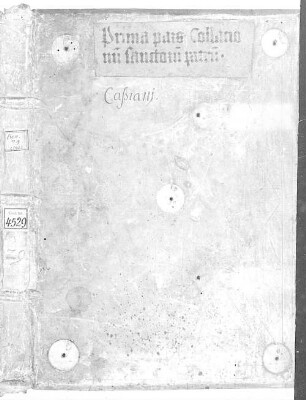 Prima pars Collatio
nū sanctorū patrū.
Caßiani.
4529